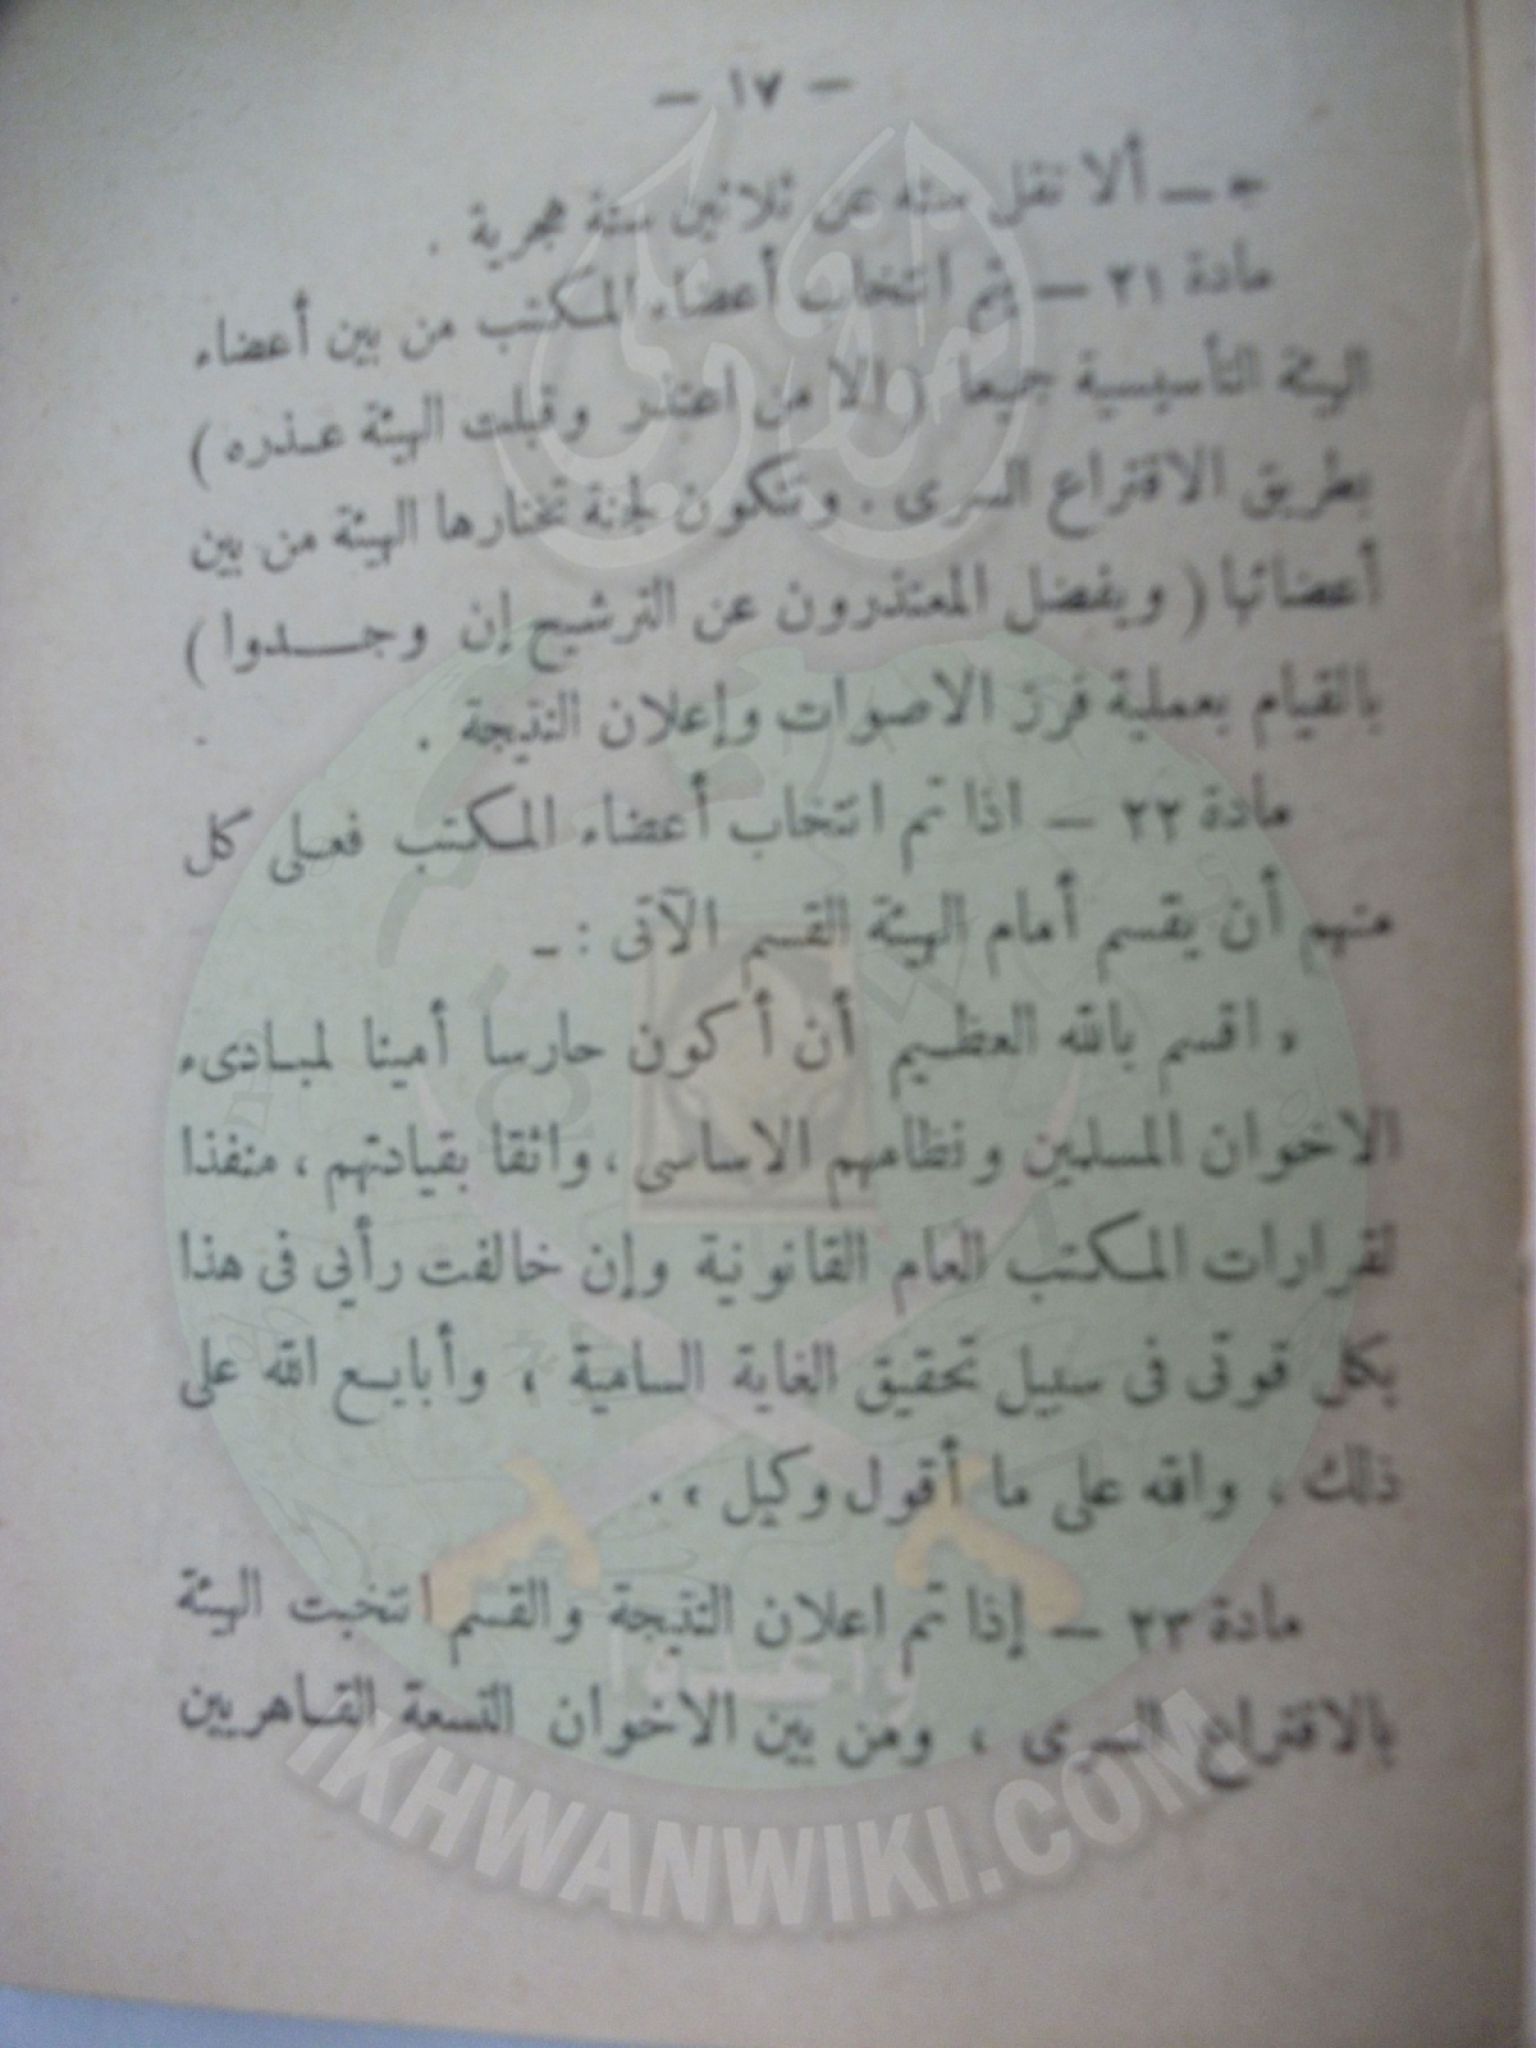 — ١٧ —
ـ ألا تقل سنه عن ثلاثين سنة هجرية .
مادة ٢١ — يتم انتخاب أعضاء المكتب من بين أعضاء
الهيئة التأسيسية جميعا ( الا من اعتذر وقبلت الهيئة عذره )
بطريق الاقتراع السرى . وتتكون لجنة تختارها الهيئة من بين
أعضائها ( ويفضل المعتذرون عن الترشيح إن وجدوا )
بالقيام بعملية فرز الاصوات وإعلان النتيجة .
مادة ٢٢ — اذا تم انتخاب أعضاء المكتب فعلى كل
منهم أن يقسم أمام الهيئة القسم الآتى : ـ
« اقسم بالله العظيم أن أكون حارسا أمينا لمبادىء
الاخوان المسلمين ونظامهم الاساسى ، واثقا بقيادتهم ، منفذا
لقرارات المكتب العام القانونية وإن خالفت رأيي فى هذا
بكل قوتى فى سبيل تحقيق الغاية السامية ، وأبايع الله على
ذلك ، والله على ما أقول وكيل » .
مادة ٢٣ — إذا تم اعلان النتيجة والقسم انتخبت الهيئة
بالاقتراع السرى ، ومن بين الاخوان التسعة القاهريين
وأعدوا
IKHWANWIKI.COM